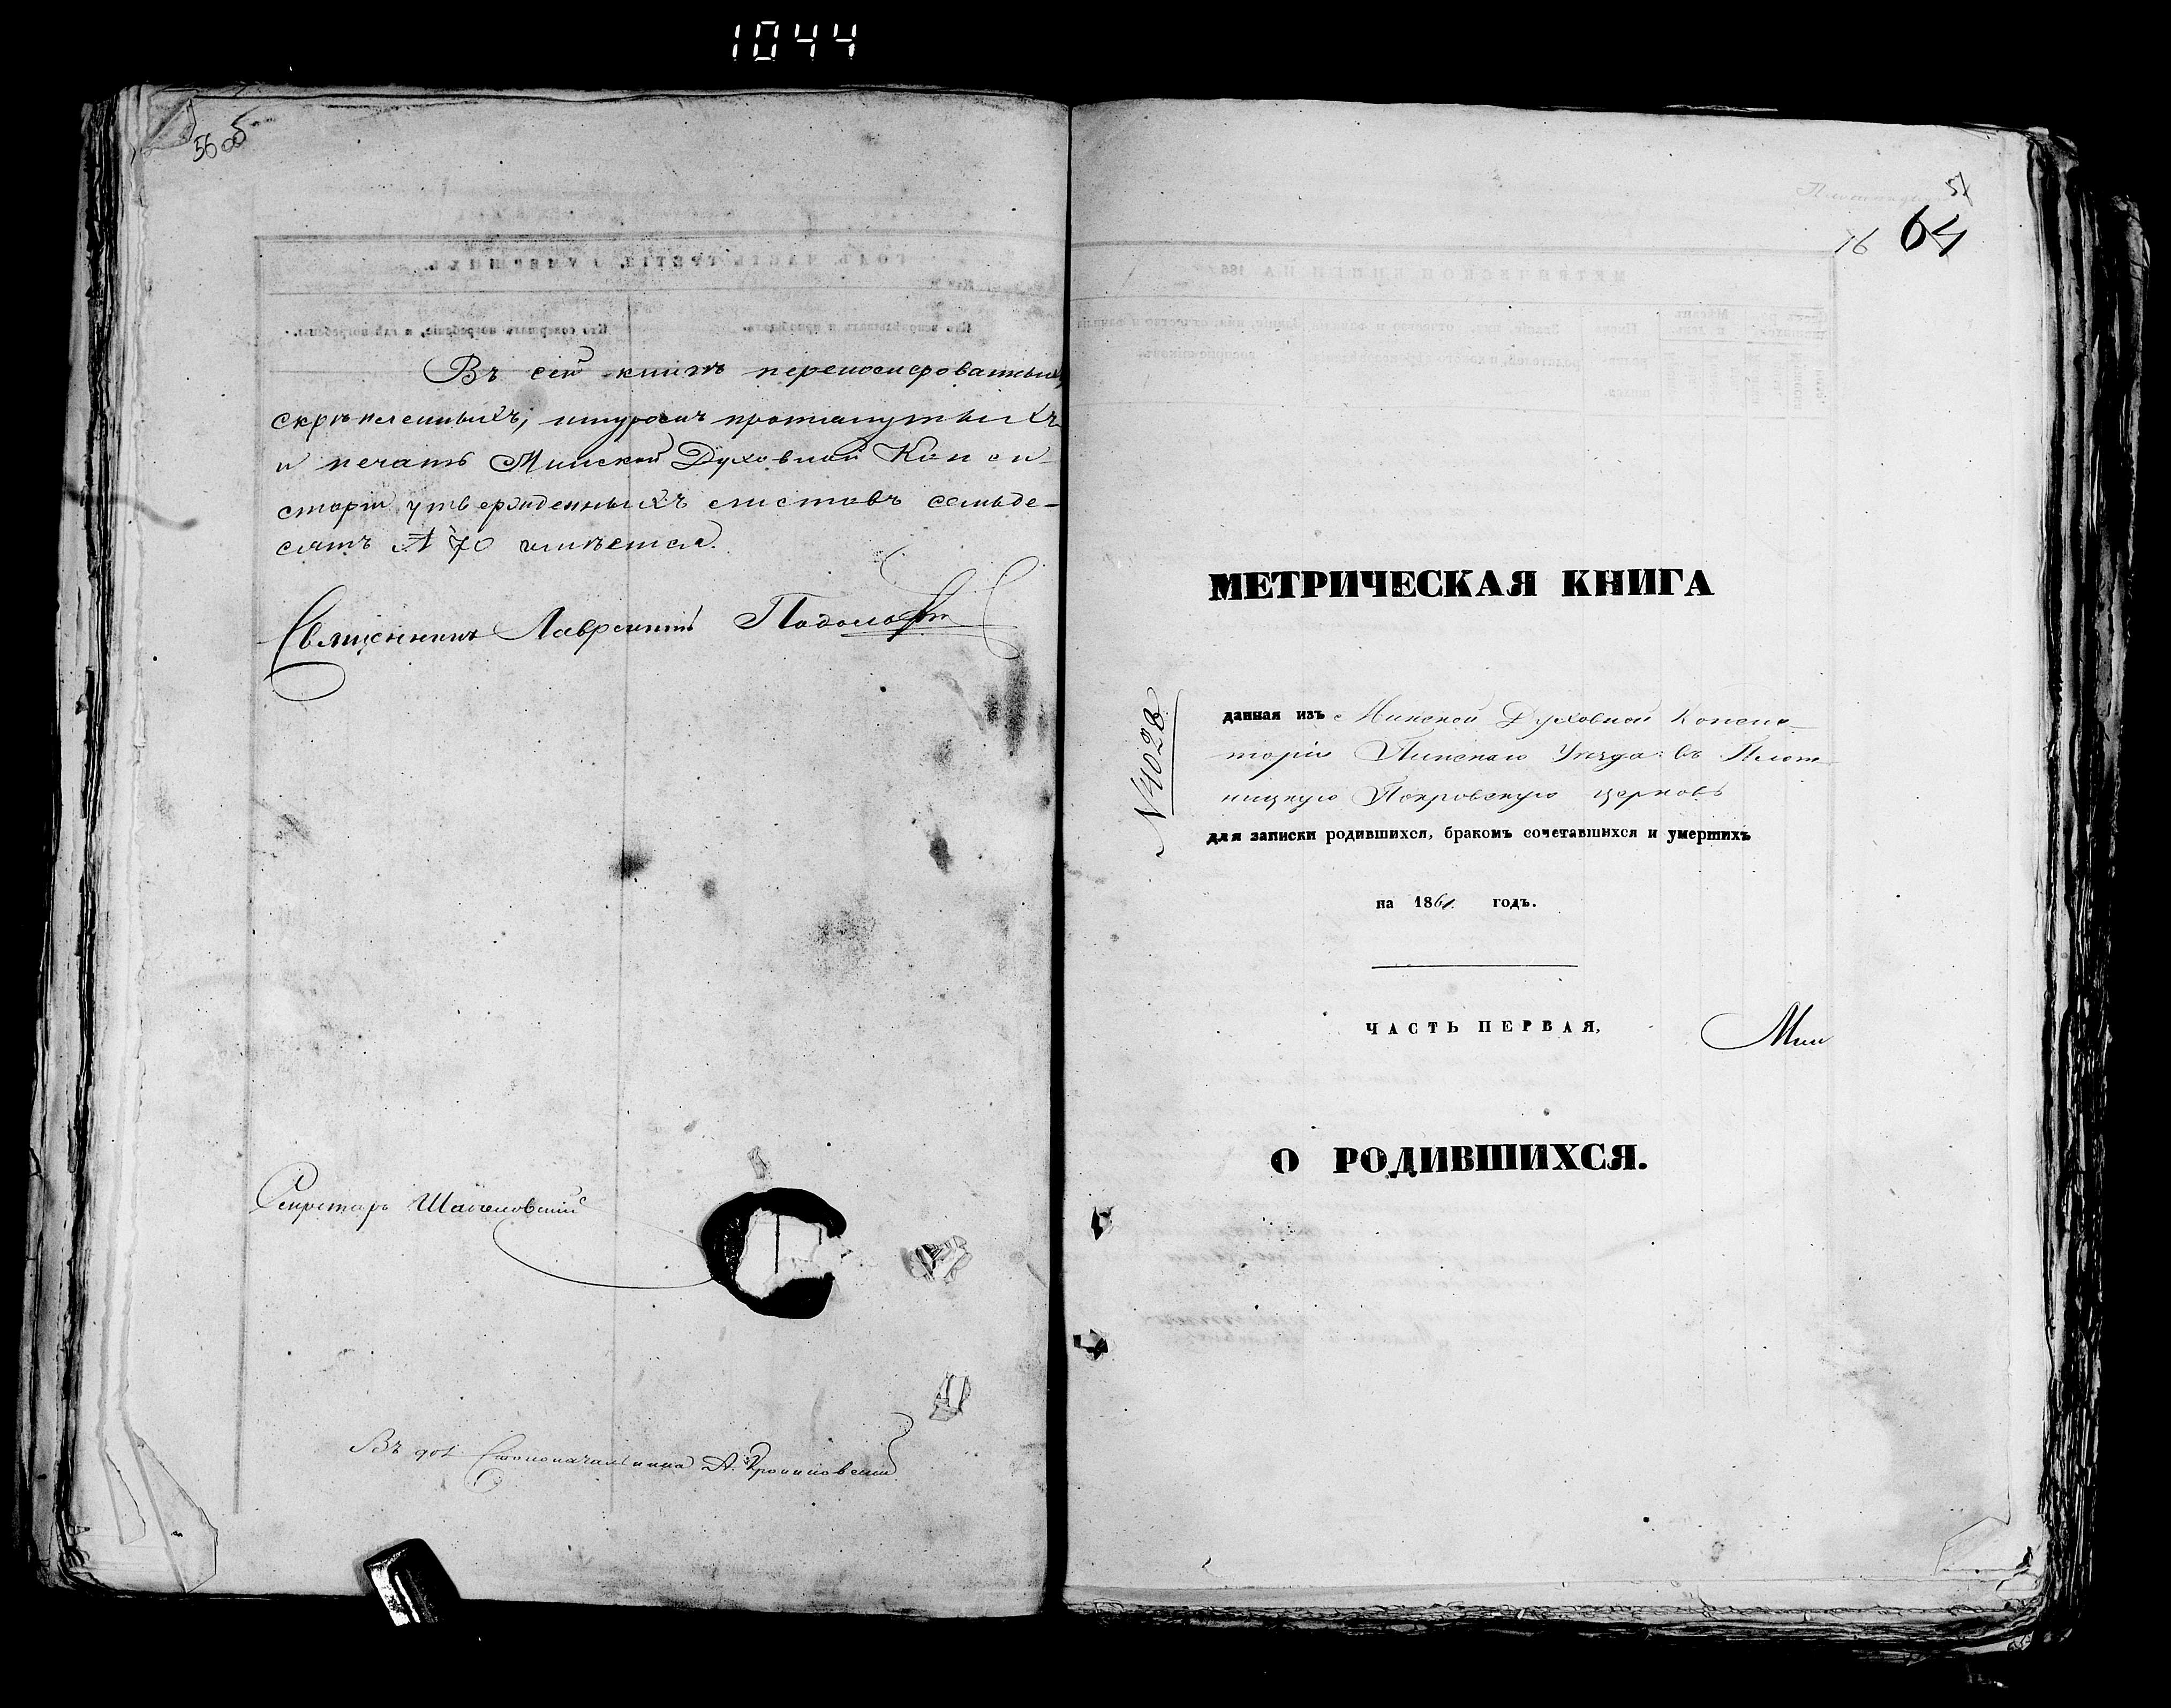 1044
56 об
Въ сей книгѣ переномерованныхъ,
скрѣпленныхъ, шнуромъ протянутыхъ
и печатью Минской Духовной Конси-
сторіи утвержденныхъ листовъ семьде-
сятъ № 70 имѣется.
Священникъ Лаврентій
Секретарь
Въ дол. Столоначальника А.
64
16
МЕТРИЧЕСКАЯ КНИГА
№ 4028
данная изъ Минской Духовной Консис-
торіи Пинскаго Уѣзда въ Плот-
ницкую Покровскую церковь
для записки родившихся, бракомъ сочетавшихся и умершихъ
на 1861 годъ.
ЧАСТЬ ПЕРВАЯ,
Мин
О РОДИВШИХСЯ.